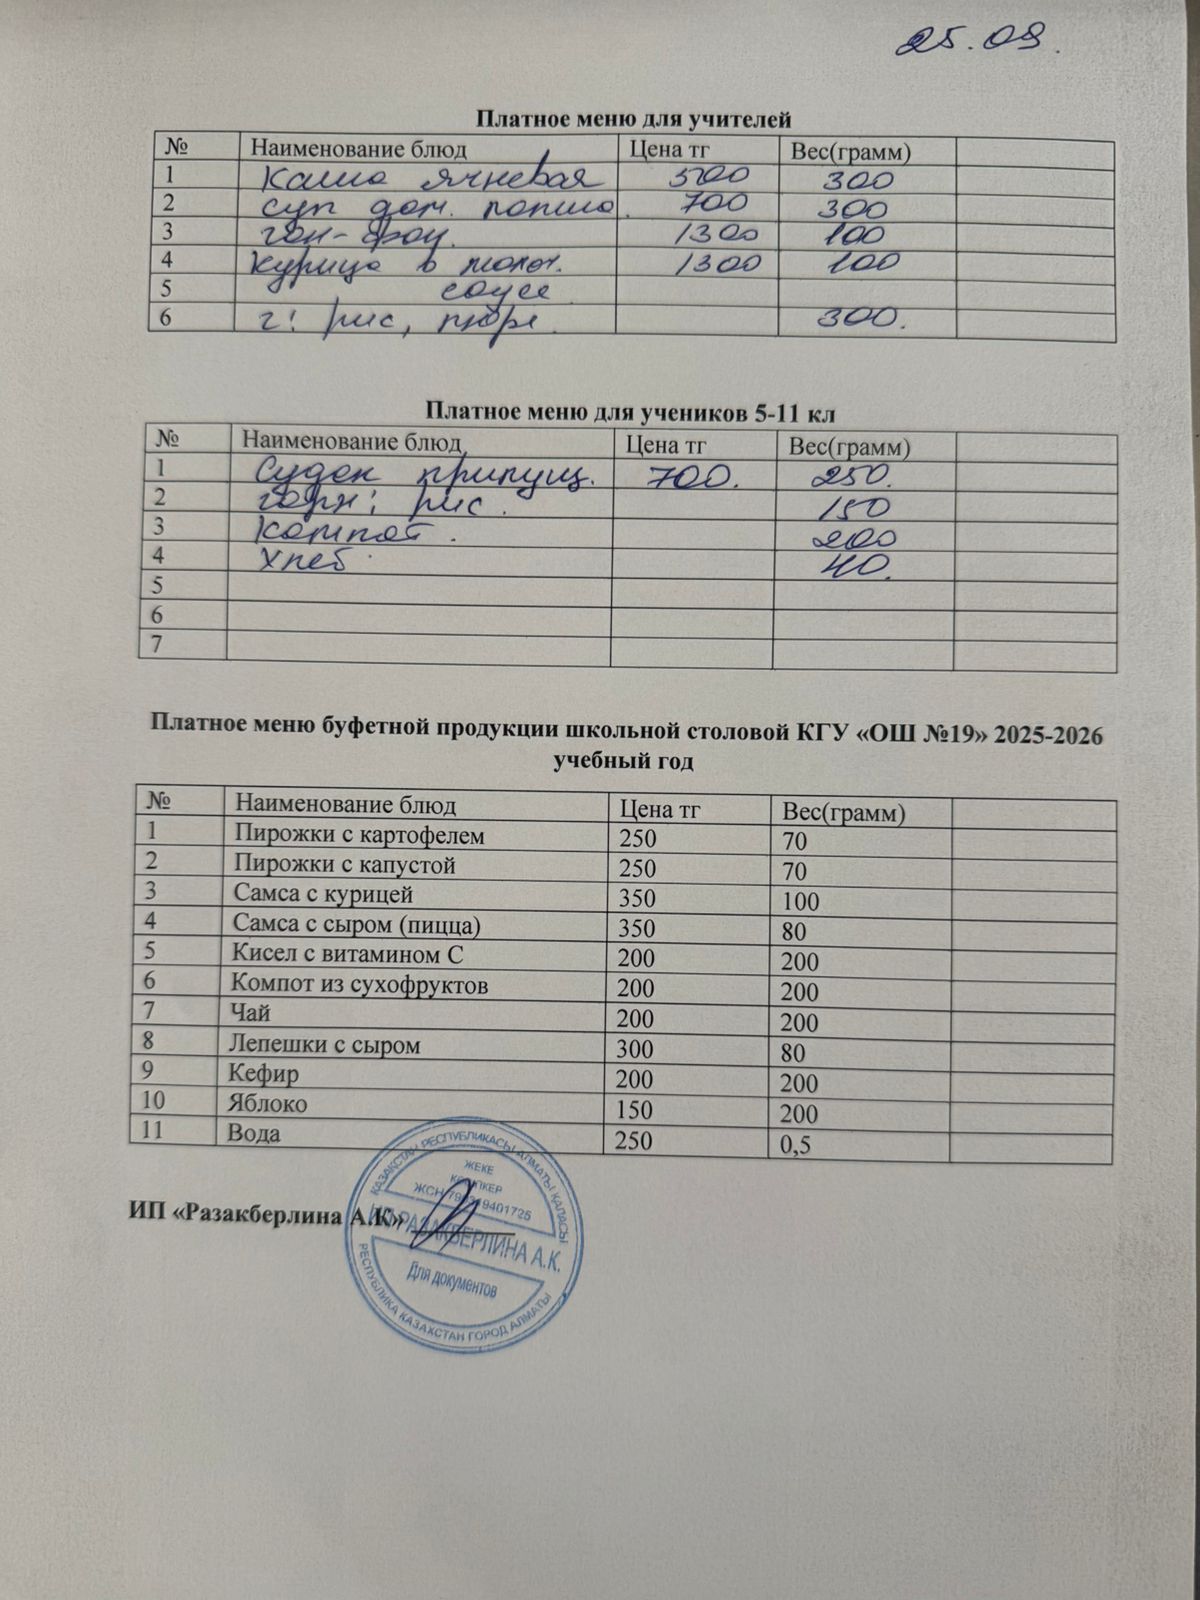 25.09.
Платное меню для учителей
№ Наименование блюд Цена тг Вес(грамм)
1 Каша ячневая 500 300
2 Суп дом. лапша. 700 300
3 ган-фан. 1300 100
4 Курица в молоч. 1300 100
5 соусе
6 г: рис, пюре. 300.
Платное меню для учеников 5-11 кл
№ Наименование блюд Цена тг Вес(грамм)
1 Судак припущ. 700. 250.
2 гарн: рис. 150
3 Компот. 200
4 Хлеб. 40.
5
6
7
Платное меню буфетной продукции школьной столовой КГУ «ОШ №19» 2025-2026
учебный год
№ Наименование блюд Цена тг Вес(грамм)
1 Пирожки с картофелем 250 70
2 Пирожки с капустой 250 70
3 Самса с курицей 350 100
4 Самса с сыром (пицца) 350 80
5 Кисел с витамином С 200 200
6 Компот из сухофруктов 200 200
7 Чай 200 200
8 Лепешки с сыром 300 80
9 Кефир 200 200
10 Яблоко 150 200
11 Вода 250 0,5
ИП «Разакберлина А.К»
ҚАЗАҚСТАН РЕСПУБЛИКАСЫ АЛМАТЫ ҚАЛАСЫ
ЖЕКЕ
КӘСІПКЕР
ЖСН
РАЗАКБЕРЛИНА А.К.
Для документов
РЕСПУБЛИКА КАЗАХСТАН ГОРОД АЛМАТЫ